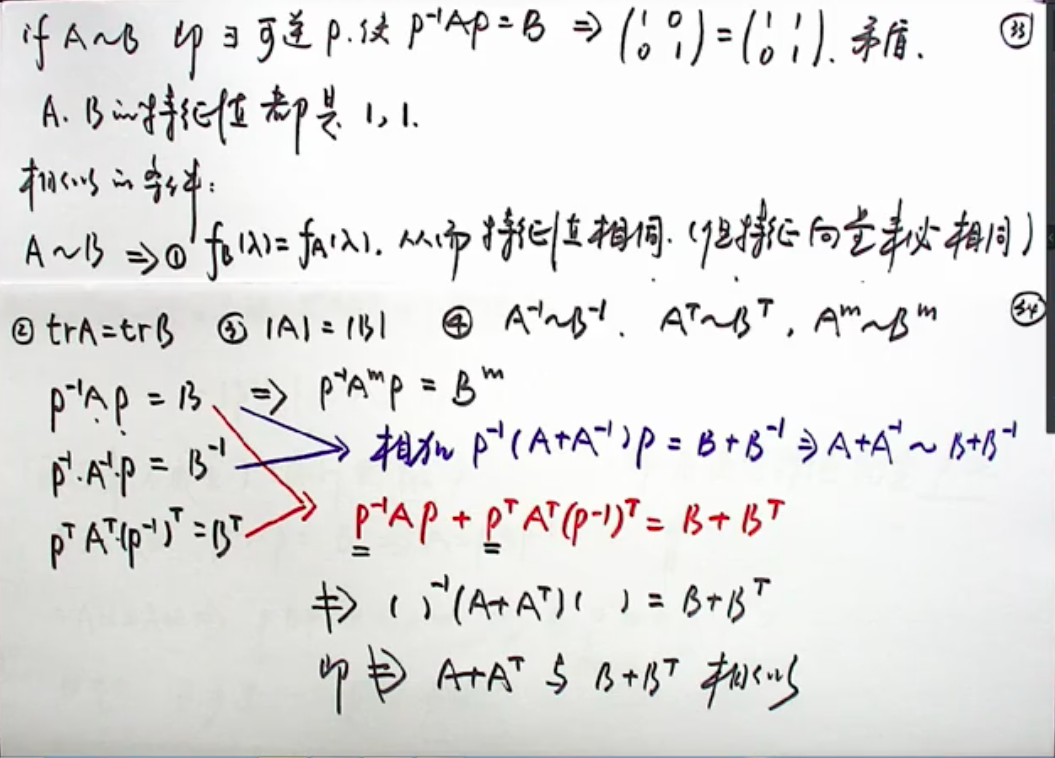 if A~B 即∃可逆P.使 P⁻¹AP = B ⇒ (1 0 0 1) = (1 1 0 1). 矛盾. ㉝
A. B的特征值都是 1, 1.
相似的条件:
A~B ⇒ ① f_B(λ) = f_A(λ). 从而特征值相同.(但特征向量未必相同)
② trA = trB ③ |A| = |B| ④ A⁻¹~B⁻¹. Aᵀ~Bᵀ, Aᵐ~Bᵐ ㉞
P⁻¹AP = B ⇒ P⁻¹AᵐP = Bᵐ
P⁻¹·A⁻¹·P = B⁻¹ 相加 P⁻¹(A+A⁻¹)P = B+B⁻¹ ⇒ A+A⁻¹ ~ B+B⁻¹
PᵀAᵀ(P⁻¹)ᵀ = Bᵀ P⁻¹AP + PᵀAᵀ(P-1)ᵀ = B + Bᵀ
⇏ ( )⁻¹(A+Aᵀ)( ) = B+Bᵀ
即 ⇏ A+Aᵀ 与 B+Bᵀ 相似